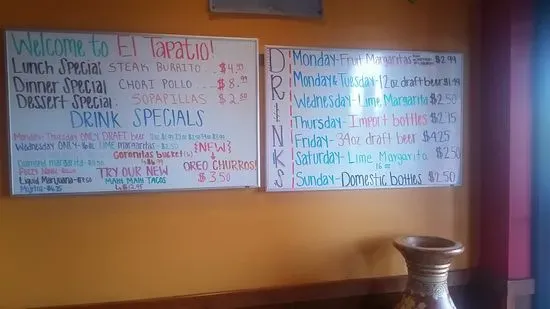 Welcome to El Tapatio!
Lunch Special STEAK BURRITO...
Dinner Special CHORI POLLO....
Dessert Special: SOPAPILLAS $2.50
DRINK SPECIALS
Monday-Thursday ONLY DRAFT beer
Wednesday ONLY-16oz LIME margaritas-$2.50
{NEW}
Coronitas bucket(6)
OREO CHURROS!
$3.50
Diamond margarita
TRY OUR NEW
MAHI MAHI TACOS
$12.95
Liquid Marijuana
Mojitos-$6.25
DRINKS
Monday-Fruit Margaritas $2.99
Monday & Tuesday-12oz draft beer $1.99
Wednesday-Lime Margarita $2.50
Thursday-Import bottles $2.75
Friday-34oz draft beer $4.25
Saturday-Lime Margarita $2.50
16 oz
Sunday-Domestic bottles $2.50